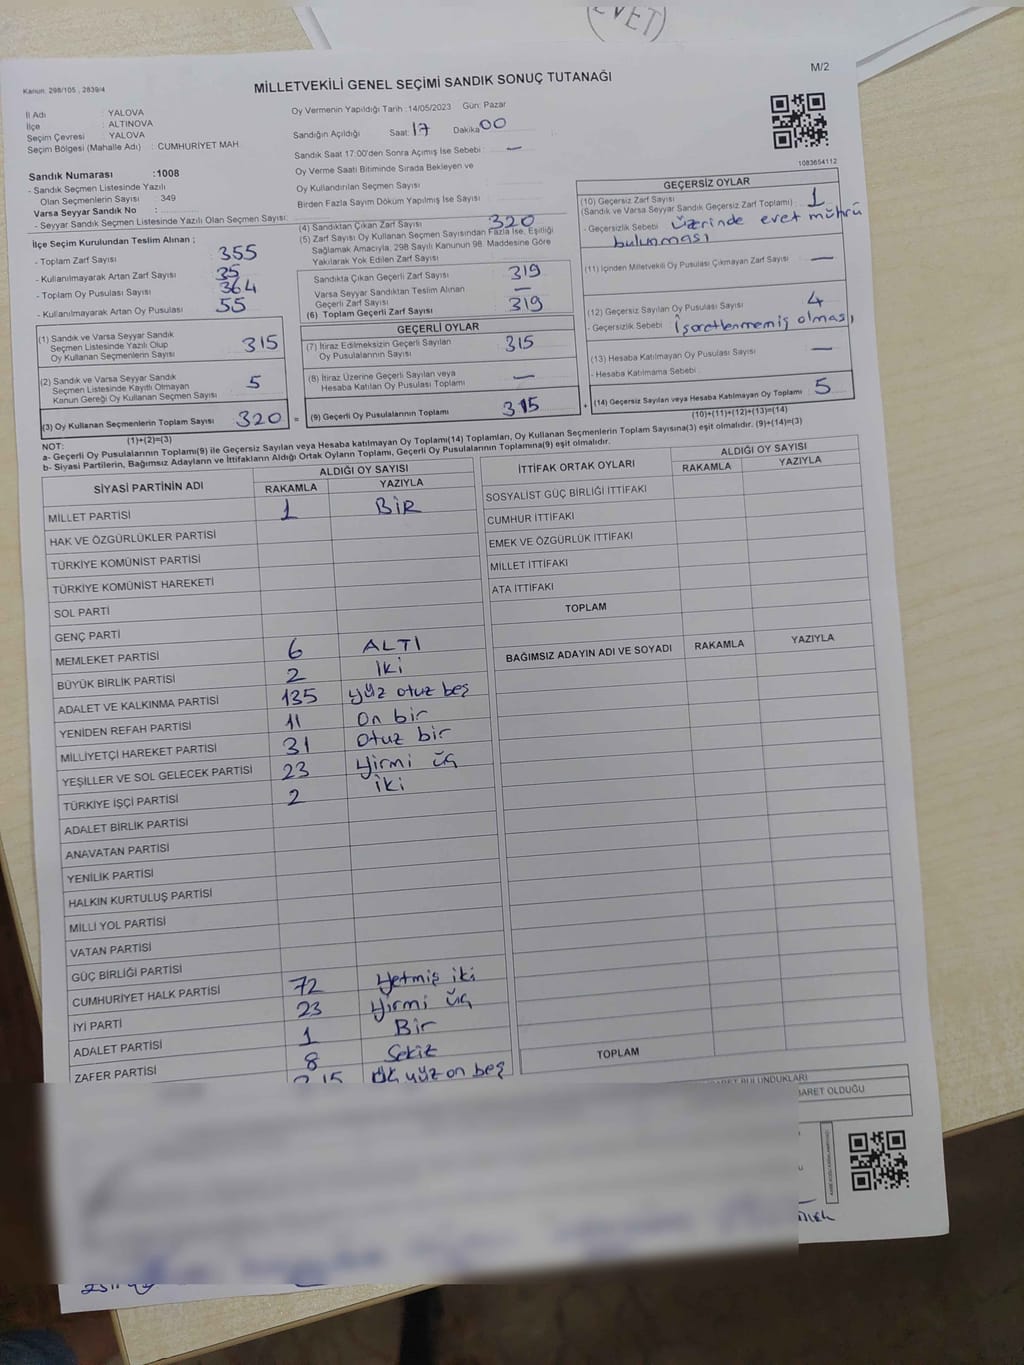 EVET
M/2
Kanun. 298/105 , 2839/4
MİLLETVEKİLİ GENEL SEÇİMİ SANDIK SONUÇ TUTANAĞI
İl Adı : YALOVA
İlçe : ALTINOVA
Seçim Çevresi : YALOVA
Seçim Bölgesi (Mahalle Adı) : CUMHURİYET MAH.
Oy Vermenin Yapıldığı Tarih :14/05/2023 Gün: Pazar
Sandığın Açıldığı Saat: 17 Dakika: 00
Sandık Saat 17:00'den Sonra Açımış İse Sebebi : —
Oy Verme Saati Bitiminde Sırada Bekleyen ve
Oy Kullandırılan Seçmen Sayısı :
Birden Fazla Sayım Döküm Yapılmış İse Sayısı :
1083654112
Sandık Numarası :1008
- Sandık Seçmen Listesinde Yazılı
Olan Seçmenlerin Sayısı : 349
Varsa Seyyar Sandık No :
- Seyyar Sandık Seçmen Listesinde Yazılı Olan Seçmen Sayısı:
İlçe Seçim Kurulundan Teslim Alınan ;
- Toplam Zarf Sayısı : 355
- Kullanılmayarak Artan Zarf Sayısı : 35
- Toplam Oy Pusulası Sayısı : 364
- Kullanılmayarak Artan Oy Pusulası : 55
(1) Sandık ve Varsa Seyyar Sandık
Seçmen Listesinde Yazılı Olup
Oy Kullanan Seçmenlerin Sayısı : 315
(2) Sandık ve Varsa Seyyar Sandık
Seçmen Listesinde Kayıtlı Olmayan
Kanun Gereği Oy Kullanan Seçmen Sayısı : 5
(3) Oy Kullanan Seçmenlerin Toplam Sayısı 320
(1)+(2)=(3)
(4) Sandıktan Çıkan Zarf Sayısı : 320
(5) Zarf Sayısı Oy Kullanan Seçmen Sayısından Fazla İse, Eşitliği
Sağlamak Amacıyla, 298 Sayılı Kanunun 98. Maddesine Göre
Yakılarak Yok Edilen Zarf Sayısı :
Sandıkta Çıkan Geçerli Zarf Sayısı : 319
Varsa Seyyar Sandıktan Teslim Alınan
Geçerli Zarf Sayısı : —
(6) Toplam Geçerli Zarf Sayısı : 319
GEÇERLİ OYLAR
(7) İtiraz Edilmeksizin Geçerli Sayılan
Oy Pusulalarının Sayısı : 315
(8) İtiraz Üzerine Geçerli Sayılan veya
Hesaba Katılan Oy Pusulası Toplamı : —
= (9) Geçerli Oy Pusulalarının Toplamı : 315
GEÇERSİZ OYLAR
(10) Geçersiz Zarf Sayısı
(Sandık ve Varsa Seyyar Sandık Geçersiz Zarf Toplamı) : 1
- Geçersizlik Sebebi : Üzerinde evet mührü
bulunması
(11) İçinden Milletvekili Oy Pusulası Çıkmayan Zarf Sayısı : —
(12) Geçersiz Sayılan Oy Pusulası Sayısı : 4
- Geçersizlik Sebebi : İşaretlenmemiş olması
(13) Hesaba Katılmayan Oy Pusulası Sayısı : —
- Hesaba Katılmama Sebebi :
+ (14) Geçersiz Sayılan veya Hesaba Katılmayan Oy Toplamı : 5
(10)+(11)+(12)+(13)=(14)
NOT:
a- Geçerli Oy Pusulalarının Toplamı(9) ile Geçersiz Sayılan veya Hesaba katılmayan Oy Toplamı(14) Toplamları, Oy Kullanan Seçmenlerin Toplam Sayısına(3) eşit olmalıdır. (9)+(14)=(3)
b- Siyasi Partilerin, Bağımsız Adayların ve İttifakların Aldığı Ortak Oyların Toplamı, Geçerli Oy Pusulalarının Toplamına(9) eşit olmalıdır.
SİYASİ PARTİNİN ADI ALDIĞI OY SAYISI
RAKAMLA YAZIYLA
MİLLET PARTİSİ 1 BİR
HAK VE ÖZGÜRLÜKLER PARTİSİ
TÜRKİYE KOMÜNİST PARTİSİ
TÜRKİYE KOMÜNİST HAREKETİ
SOL PARTİ
GENÇ PARTİ
MEMLEKET PARTİSİ 6 ALTI
BÜYÜK BİRLİK PARTİSİ 2 İki
ADALET VE KALKINMA PARTİSİ 135 yüz otuz beş
YENİDEN REFAH PARTİSİ 11 On bir
MİLLİYETÇİ HAREKET PARTİSİ 31 Otuz bir
YEŞİLLER VE SOL GELECEK PARTİSİ 23 Yirmi üç
TÜRKİYE İŞÇİ PARTİSİ 2 iki
ADALET BİRLİK PARTİSİ
ANAVATAN PARTİSİ
YENİLİK PARTİSİ
HALKIN KURTULUŞ PARTİSİ
MİLLİ YOL PARTİSİ
VATAN PARTİSİ
GÜÇ BİRLİĞİ PARTİSİ
CUMHURİYET HALK PARTİSİ 72 Yetmiş iki
İYİ PARTİ 23 Yirmi üç
ADALET PARTİSİ 1 Bir
ZAFER PARTİSİ 8 Sekiz
315 Üç yüz on beş
İTTİFAK ORTAK OYLARI ALDIĞI OY SAYISI
RAKAMLA YAZIYLA
SOSYALİST GÜÇ BİRLİĞİ İTTİFAKI
CUMHUR İTTİFAKI
EMEK VE ÖZGÜRLÜK İTTİFAKI
MİLLET İTTİFAKI
ATA İTTİFAKI
TOPLAM
BAĞIMSIZ ADAYIN ADI VE SOYADI RAKAMLA YAZIYLA
TOPLAM
BULUNDUKLARI
İBARET OLDUĞU